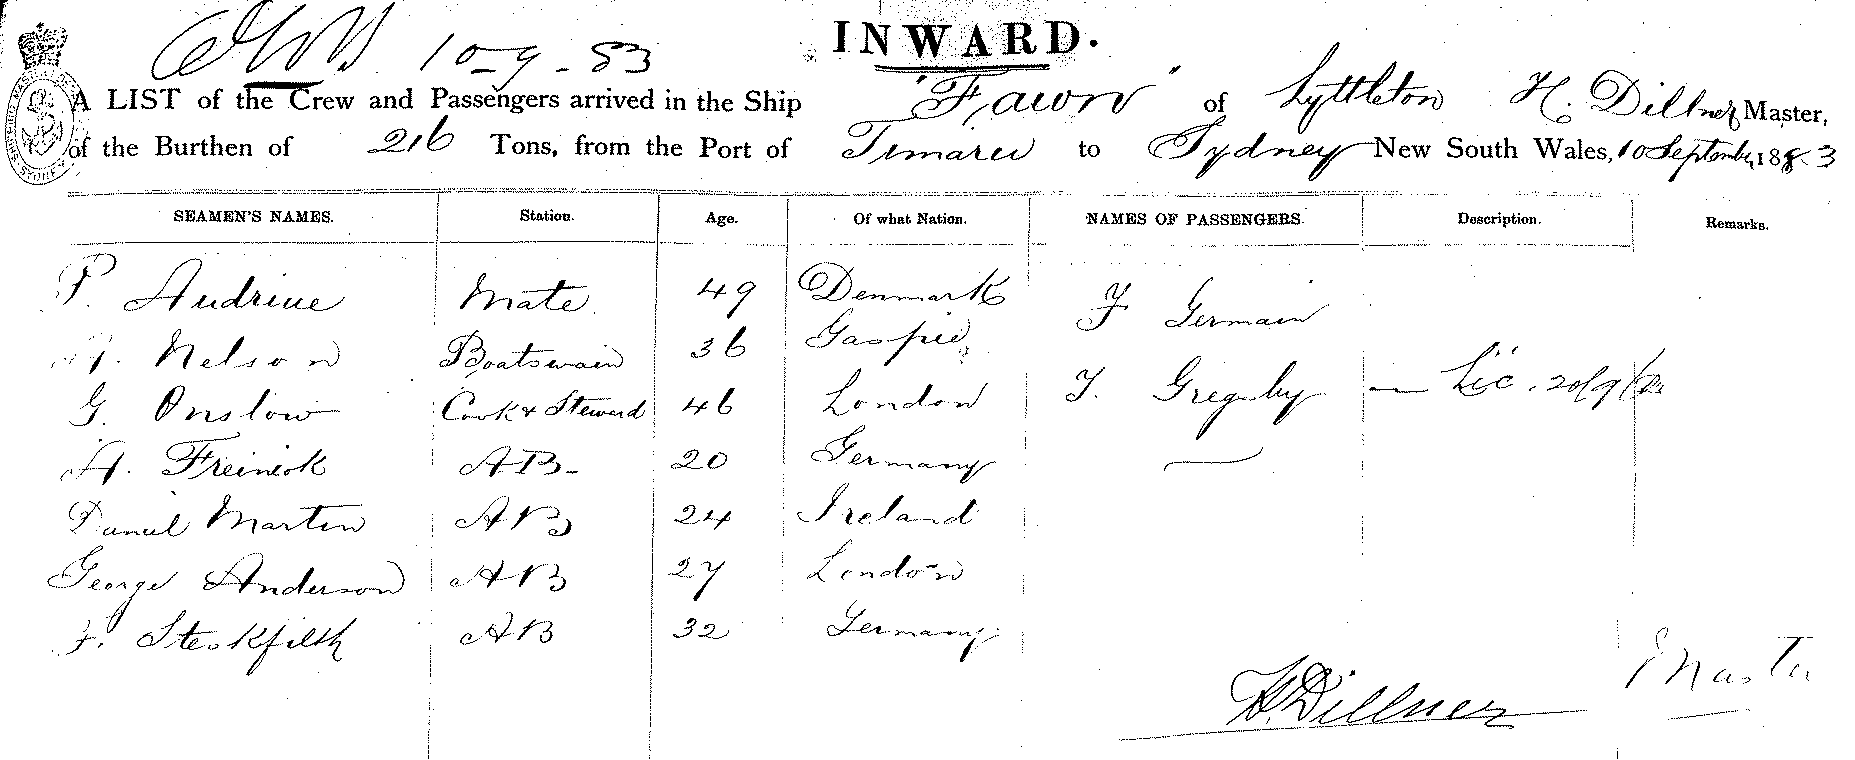 10-9-83
INWARD.
A LIST of the Crew and Passengers arrived in the Ship "Fawn" of Lyttleton H. Dillner Master,
of the Burthen of 216 Tons, from the Port of Timaru to Sydney New South Wales, 10 September 1883
SEAMEN'S NAMES. Station. Age. Of what Nation. NAMES OF PASSENGERS. Description. Remarks.
P. Audrine Mate 49 Denmark F Germain
Nelson Boatswain 36 Gaspie
G. Onslow Cook & Steward 46 London T. Gregsby — Lic. 20/9/
A. Freineck AB- 20 Germany —
Daniel Martin AB 24 Ireland
George Anderson AB 27 London
F. Steckfilth AB 32 Germany
H. Dillner Master